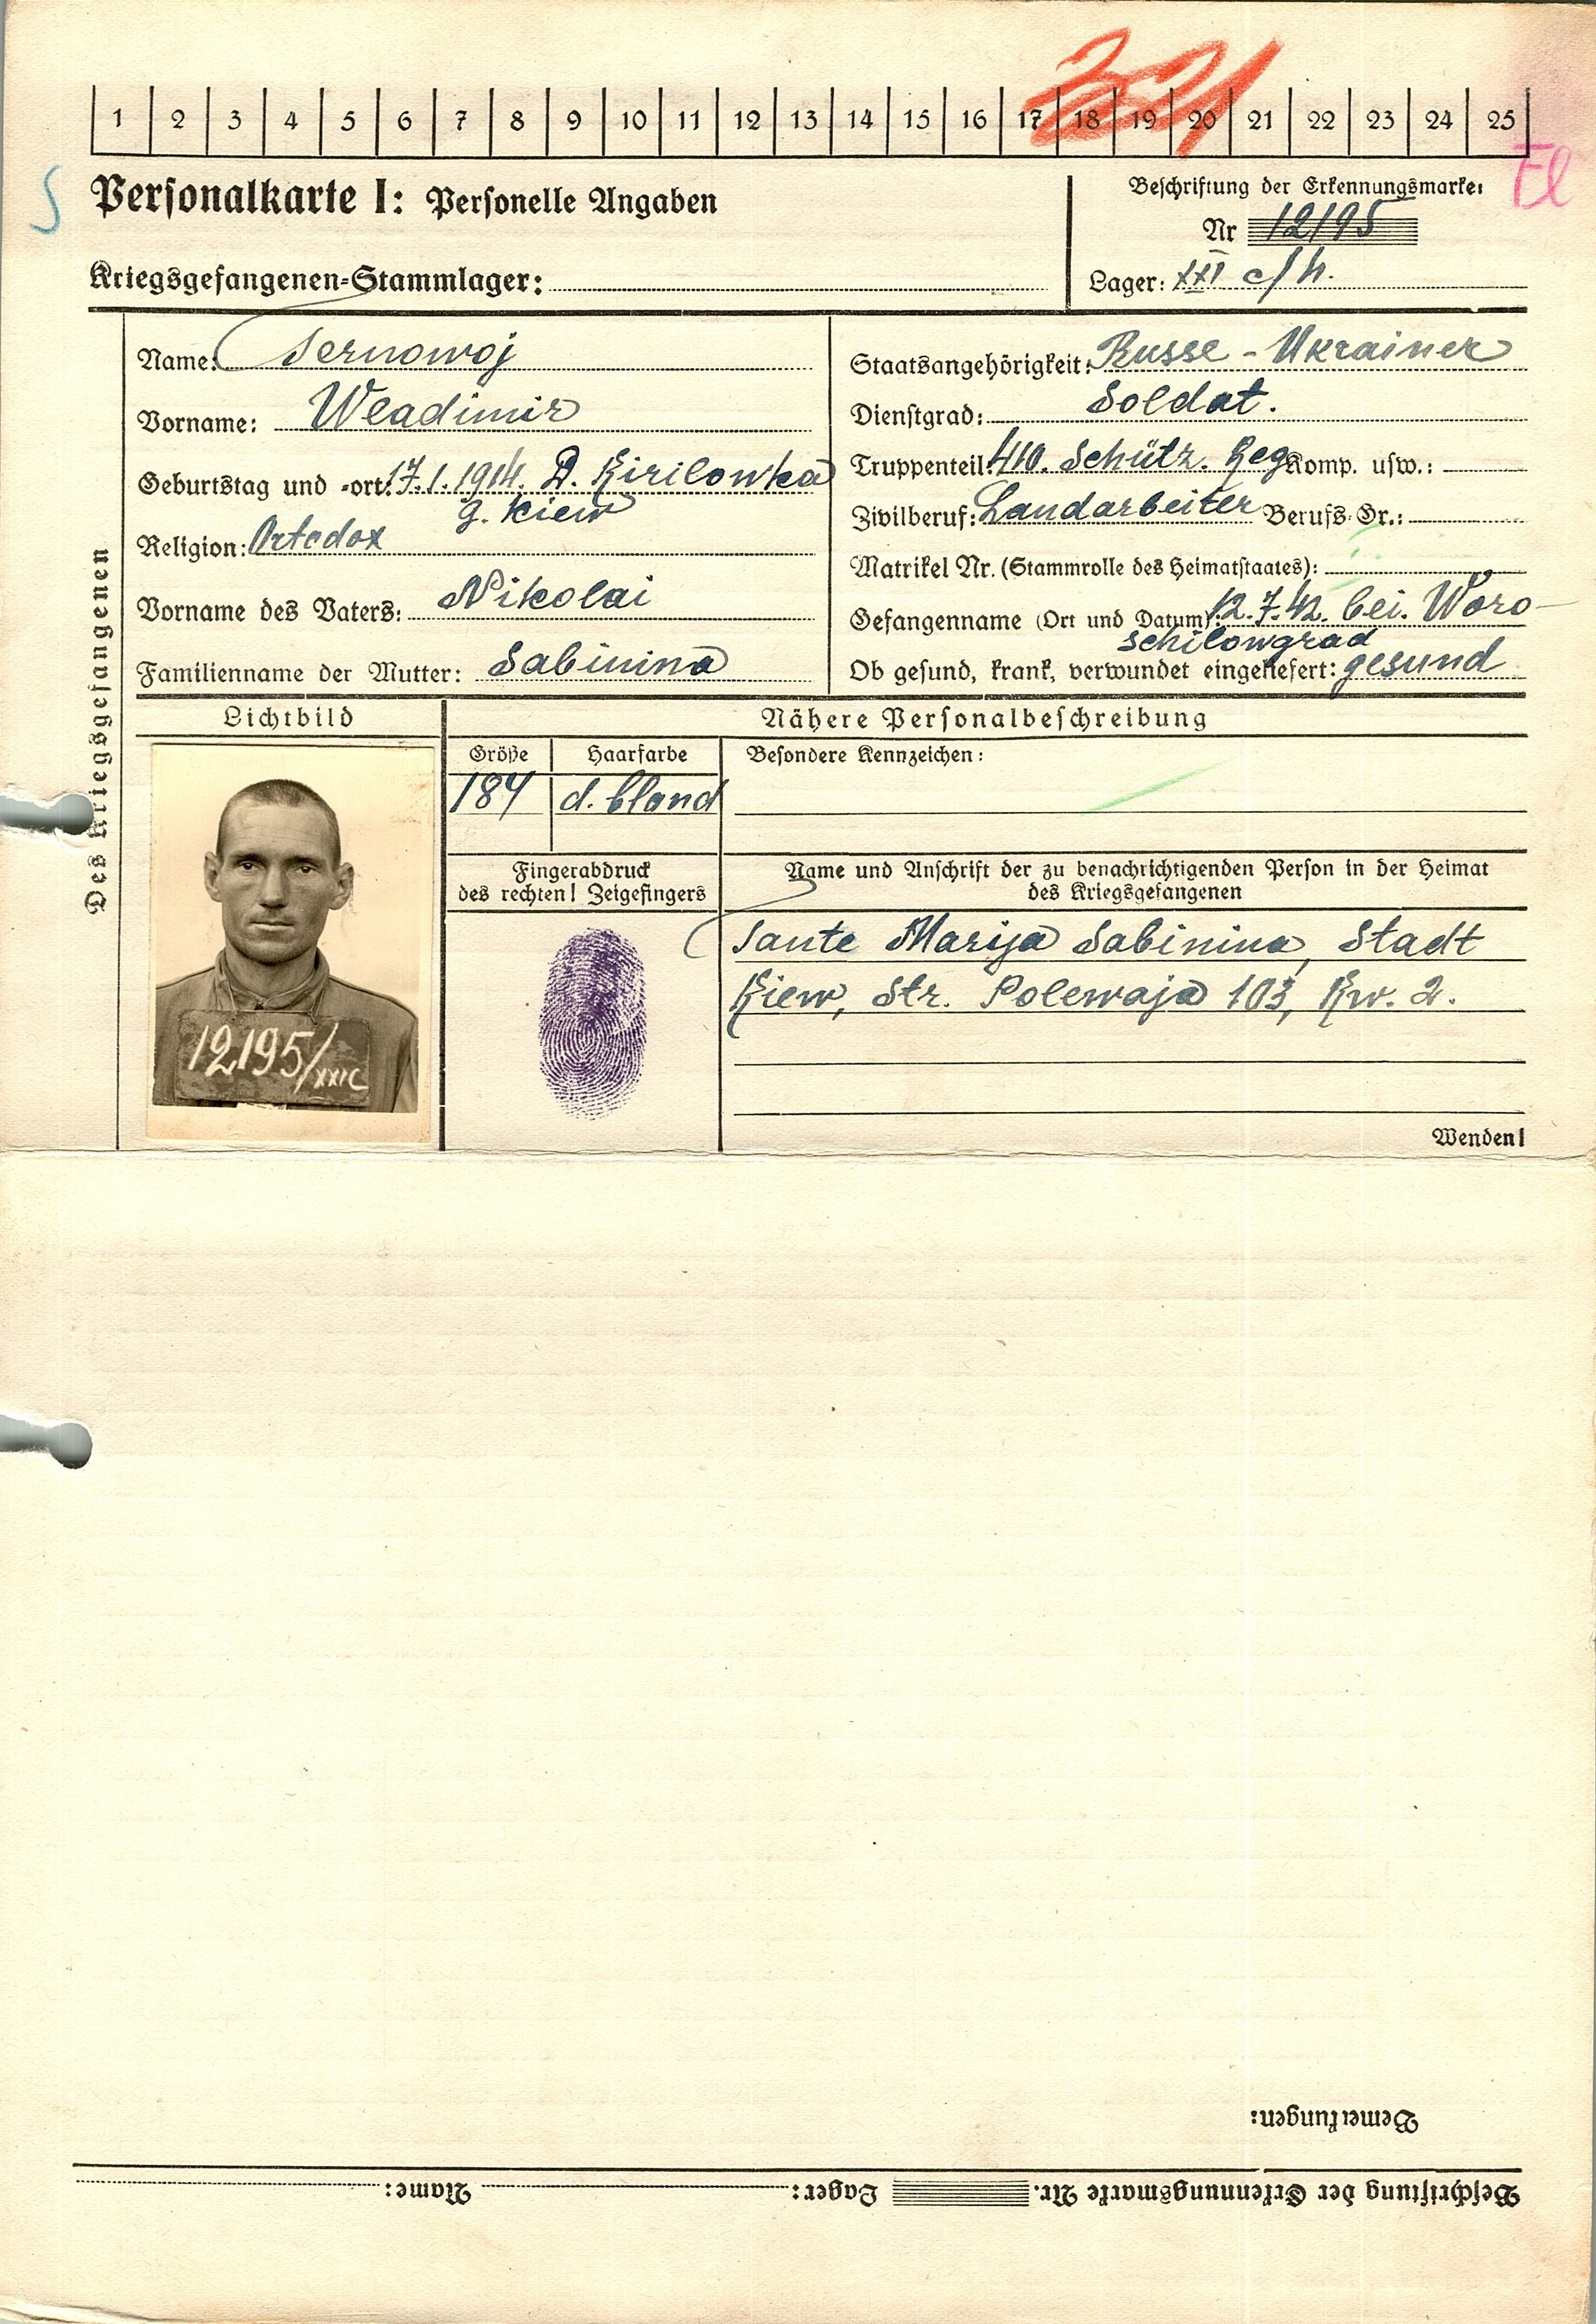 321
1 2 3 4 5 6 7 8 9 10 11 12 13 14 15 16 17 18 19 20 21 22 23 24 25
S
El
Personalkarte I: Personelle Angaben
Beschriftung der Erkennungsmarke:
Nr 12195
Kriegsgefangenen-Stammlager:
Lager: XXI c/h.
Des Kriegsgefangenen
Name: Ternowoj
Vorname: Wladimir
Geburtstag und -ort: 17.1.1914. D. Kirilowka
g. Kiew
Religion: Ortodox
Vorname des Vaters: Nikolai
Familienname der Mutter: Sabinina
Staatsangehörigkeit: Russe - Ukrainer
Dienstgrad: Soldat.
Truppenteil: 410. Schütz. Reg. Komp. usw.:
Zivilberuf: Landarbeiter Berufs-Gr.:
Matrikel Nr. (Stammrolle des Heimatstaates):
Gefangenname (Ort und Datum): 12.7.42. bei. Woro-
schilowgrad
Ob gesund, krank, verwundet eingeliefert: gesund
Lichtbild
12195/XXIC
Nähere Personalbeschreibung
Größe
184
Haarfarbe
d. blond
Besondere Kennzeichen:
Fingerabdruck
des rechten! Zeigefingers
Name und Anschrift der zu benachrichtigenden Person in der Heimat
des Kriegsgefangenen
Tante Marija Sabinina, Stadt
Kiew, Str. Polewaja 103, Kw. 2.
Wenden!
Bemerkungen:
Beschriftung der Erkennungsmarke Nr. Lager: Name: